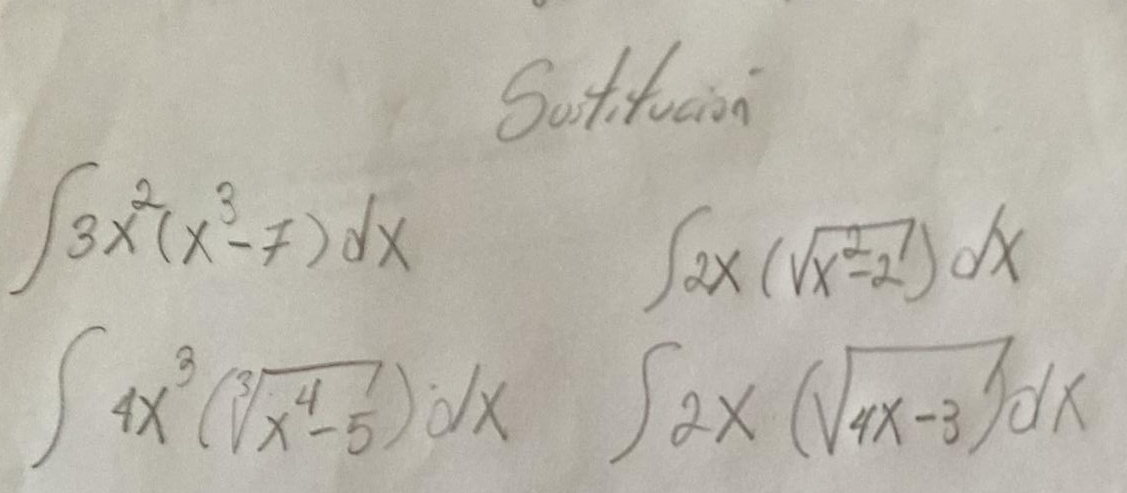 Sustitución
∫3x²(x³-7)dx
∫2x(√(x²-2))dx
∫4x³(∛(x⁴-5))dx
∫2x(√(4x-3))dx